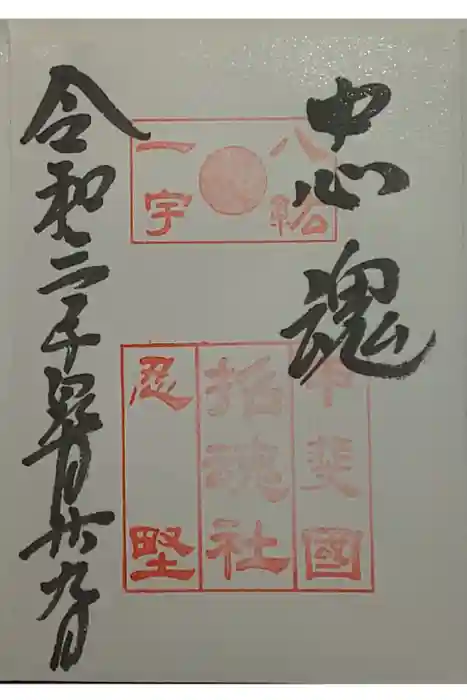 忠魂
八紘
一宇
甲斐國
招魂社
忍堅
令和二年四月廿九日